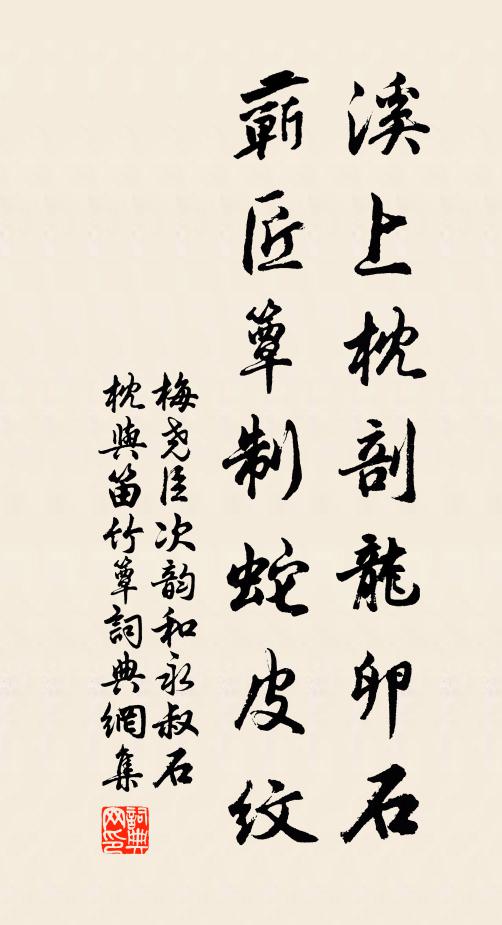 溪上枕剖龍卵石
蘄匠簟制蛇皮紋
梅堯臣次韵和永叔石
枕與笛竹簟詞典網集
詞典
网印